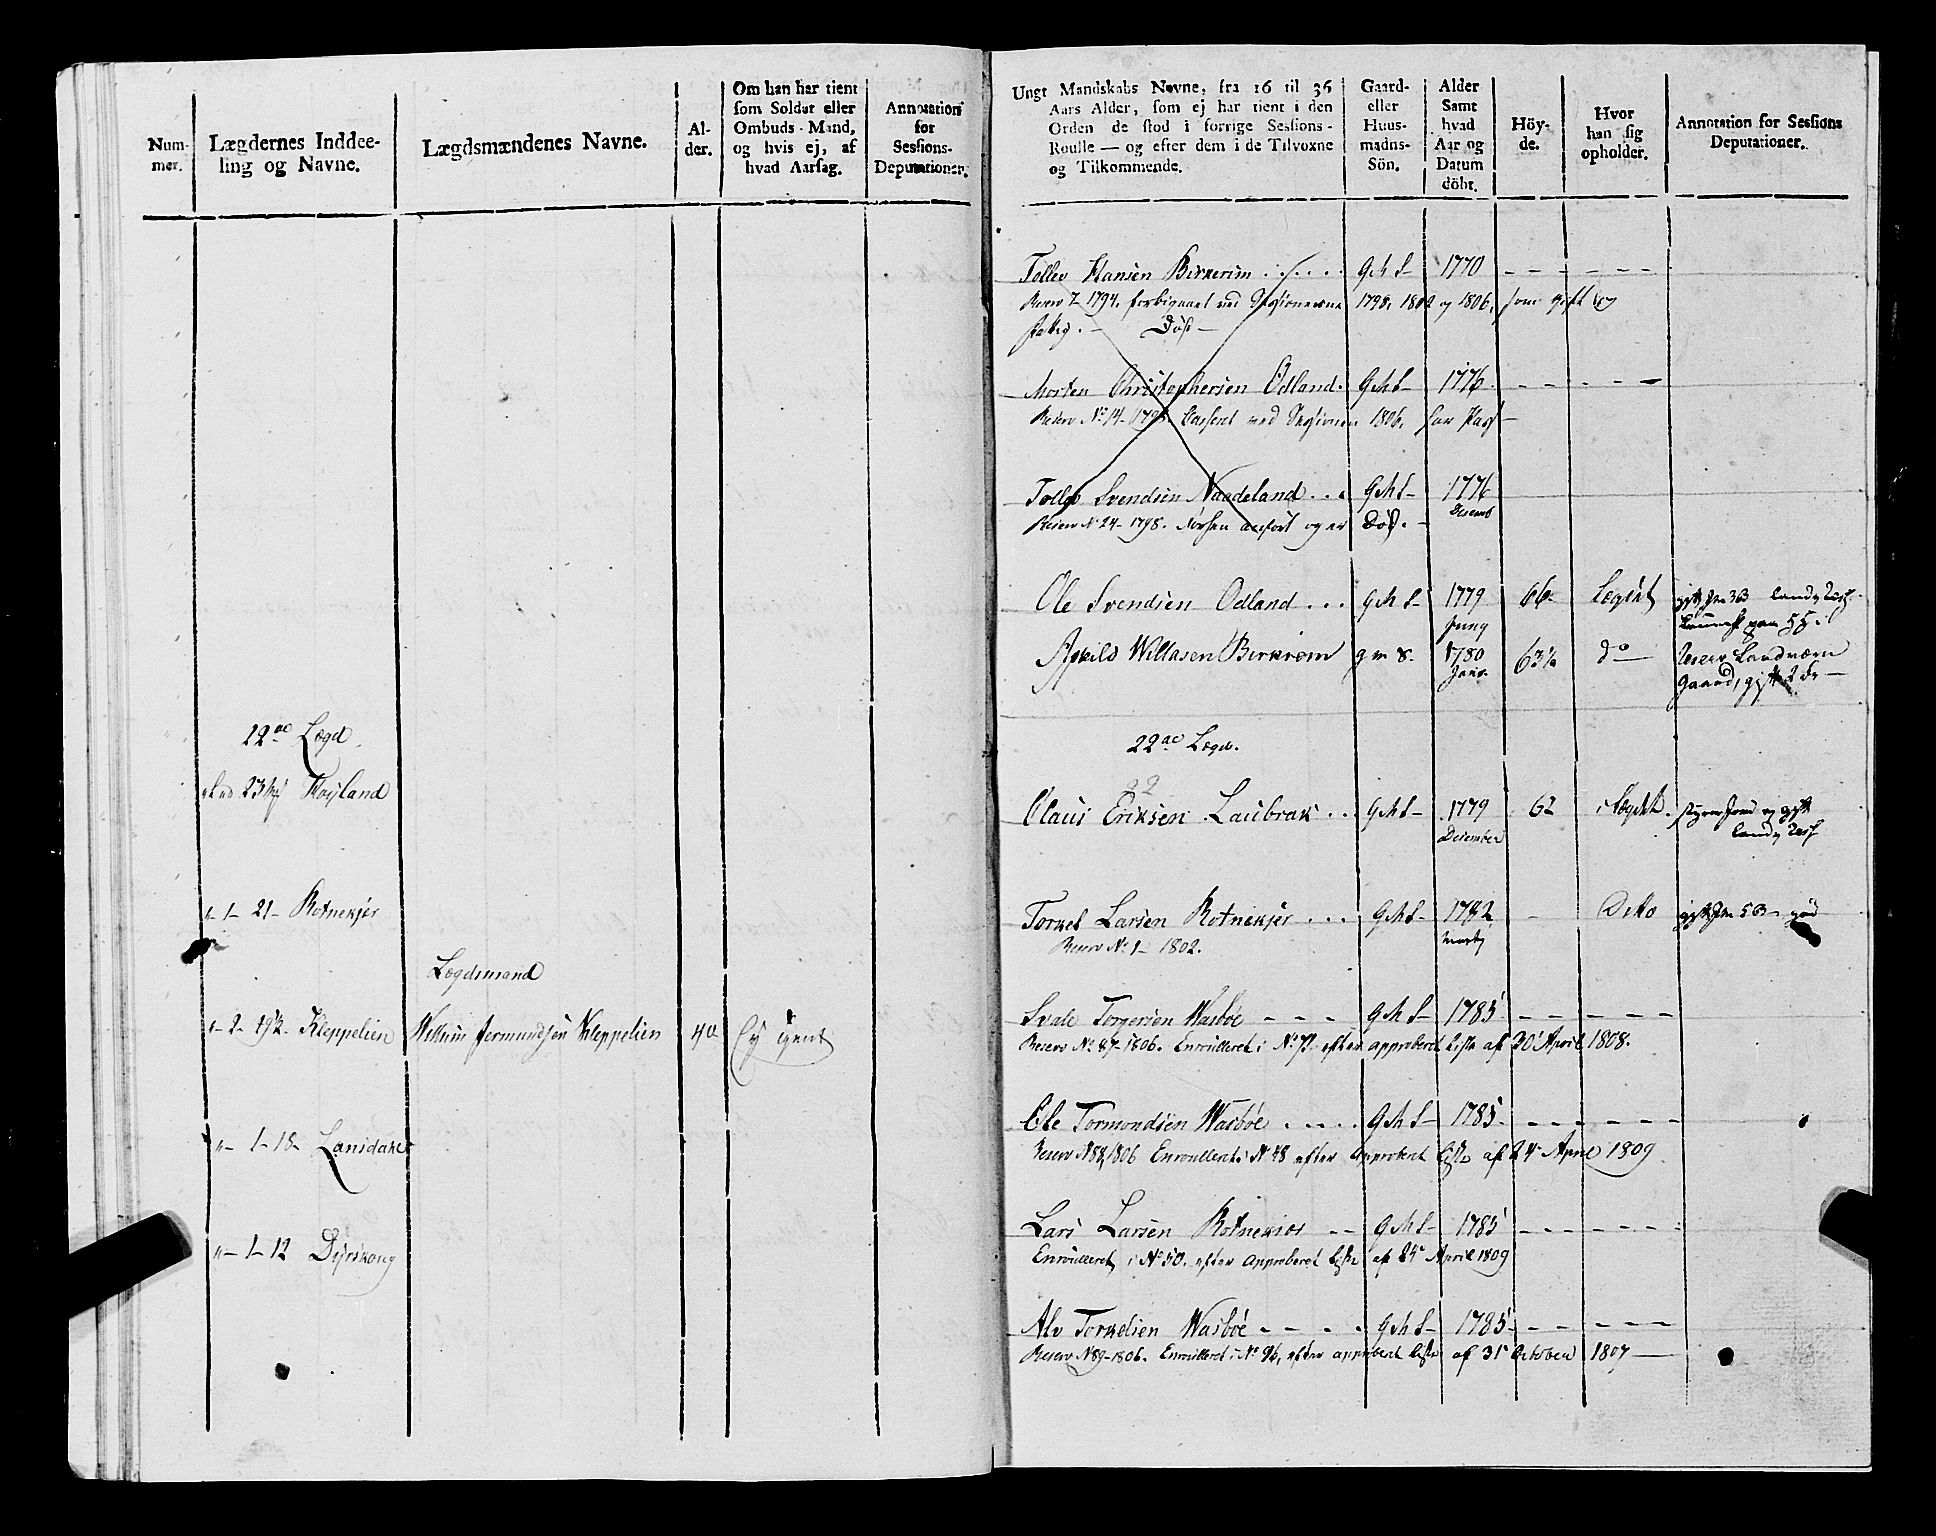 Num-
mer.
Lægdernes Inddee-
ling og Navne.
Lægdsmændenes Navne.
Al-
der.
Om han har tient
som Soldat eller
Ombuds-Mand,
og hvis ej, af
hvad Aarsag.
Annotation
for
Sessions-
Deputationer.
22de Lægd
23 Høyland
1 - 21 - Rotnekjer
Lægdsmand
2 - 19½ - Kleppelien Willum Jermundsen Kleppelien 40
1 - 18 - Lansdaker
1 - 12 Dyrskoug
Ungt Mandskabs Navne, fra 16 til 36
Aars Alder, som ej har tient i den
Orden de stod i forrige Sessions-
Roulle — og efter dem i de Tilvoxne
og Tilkommende.
Gaard-
eller
Huus-
mands-
Sön.
Alder
Samt
hvad
Aar og
Datum
döbt.
Höy-
de.
Hvor
han sig
opholder.
Annotation for Sessions
Deputationer.
Tollev Hansen Birkerim G M S - 1770
Reserv 7 1794. forbigaaet ved Sessionerne 1798, 1802 og 1806, som gift og
Død -
Morten Christophersen Ödland G M S - 1776
Reserv No 14 - 1798. Casseret ved Sessionen 1806, har Pass -
Tollev Svendsen Naadeland G M S - 1776
Decemb
Reserv No 24 - 1798. anført og er Død. -
Ole Svendsen Odland G M S - 1779 66 - Lægdet
Juny
Askild Willasen Birkrem g m S - 1780 63½ do Reserv Landværn
Janv. Gaard, gift 2 Sr -
22de Lægd.
22
Olaus Eriksen Laubrak G M S - 1779 62 i Lægdet
December
Torkel Larsen Rotnekjer G M S - 1782 - Ditto
Marty
Reserv No 1 - 1802.
Svale Torgersen Wasbøe G M S - 1785
Reserv No 87 - 1806. Enroulleret i No 72 efter approberet Liste af 30 April 1808.
Ole Tormondsen Wasbøe G M S - 1785
Reserv No 88, 1806 Enroulleret i No 48 efter approberet Liste af 24 April 1809
Lars Larsen Rotnekier G M S - 1785
Enroulleret i No 50. efter approberet Liste af 24 April 1809
Alv Torkelsen Wasbøe G M S - 1785
Reserv No 89 - 1806. Enroulleret i No 96, efter approberet Liste af 31 October 1807